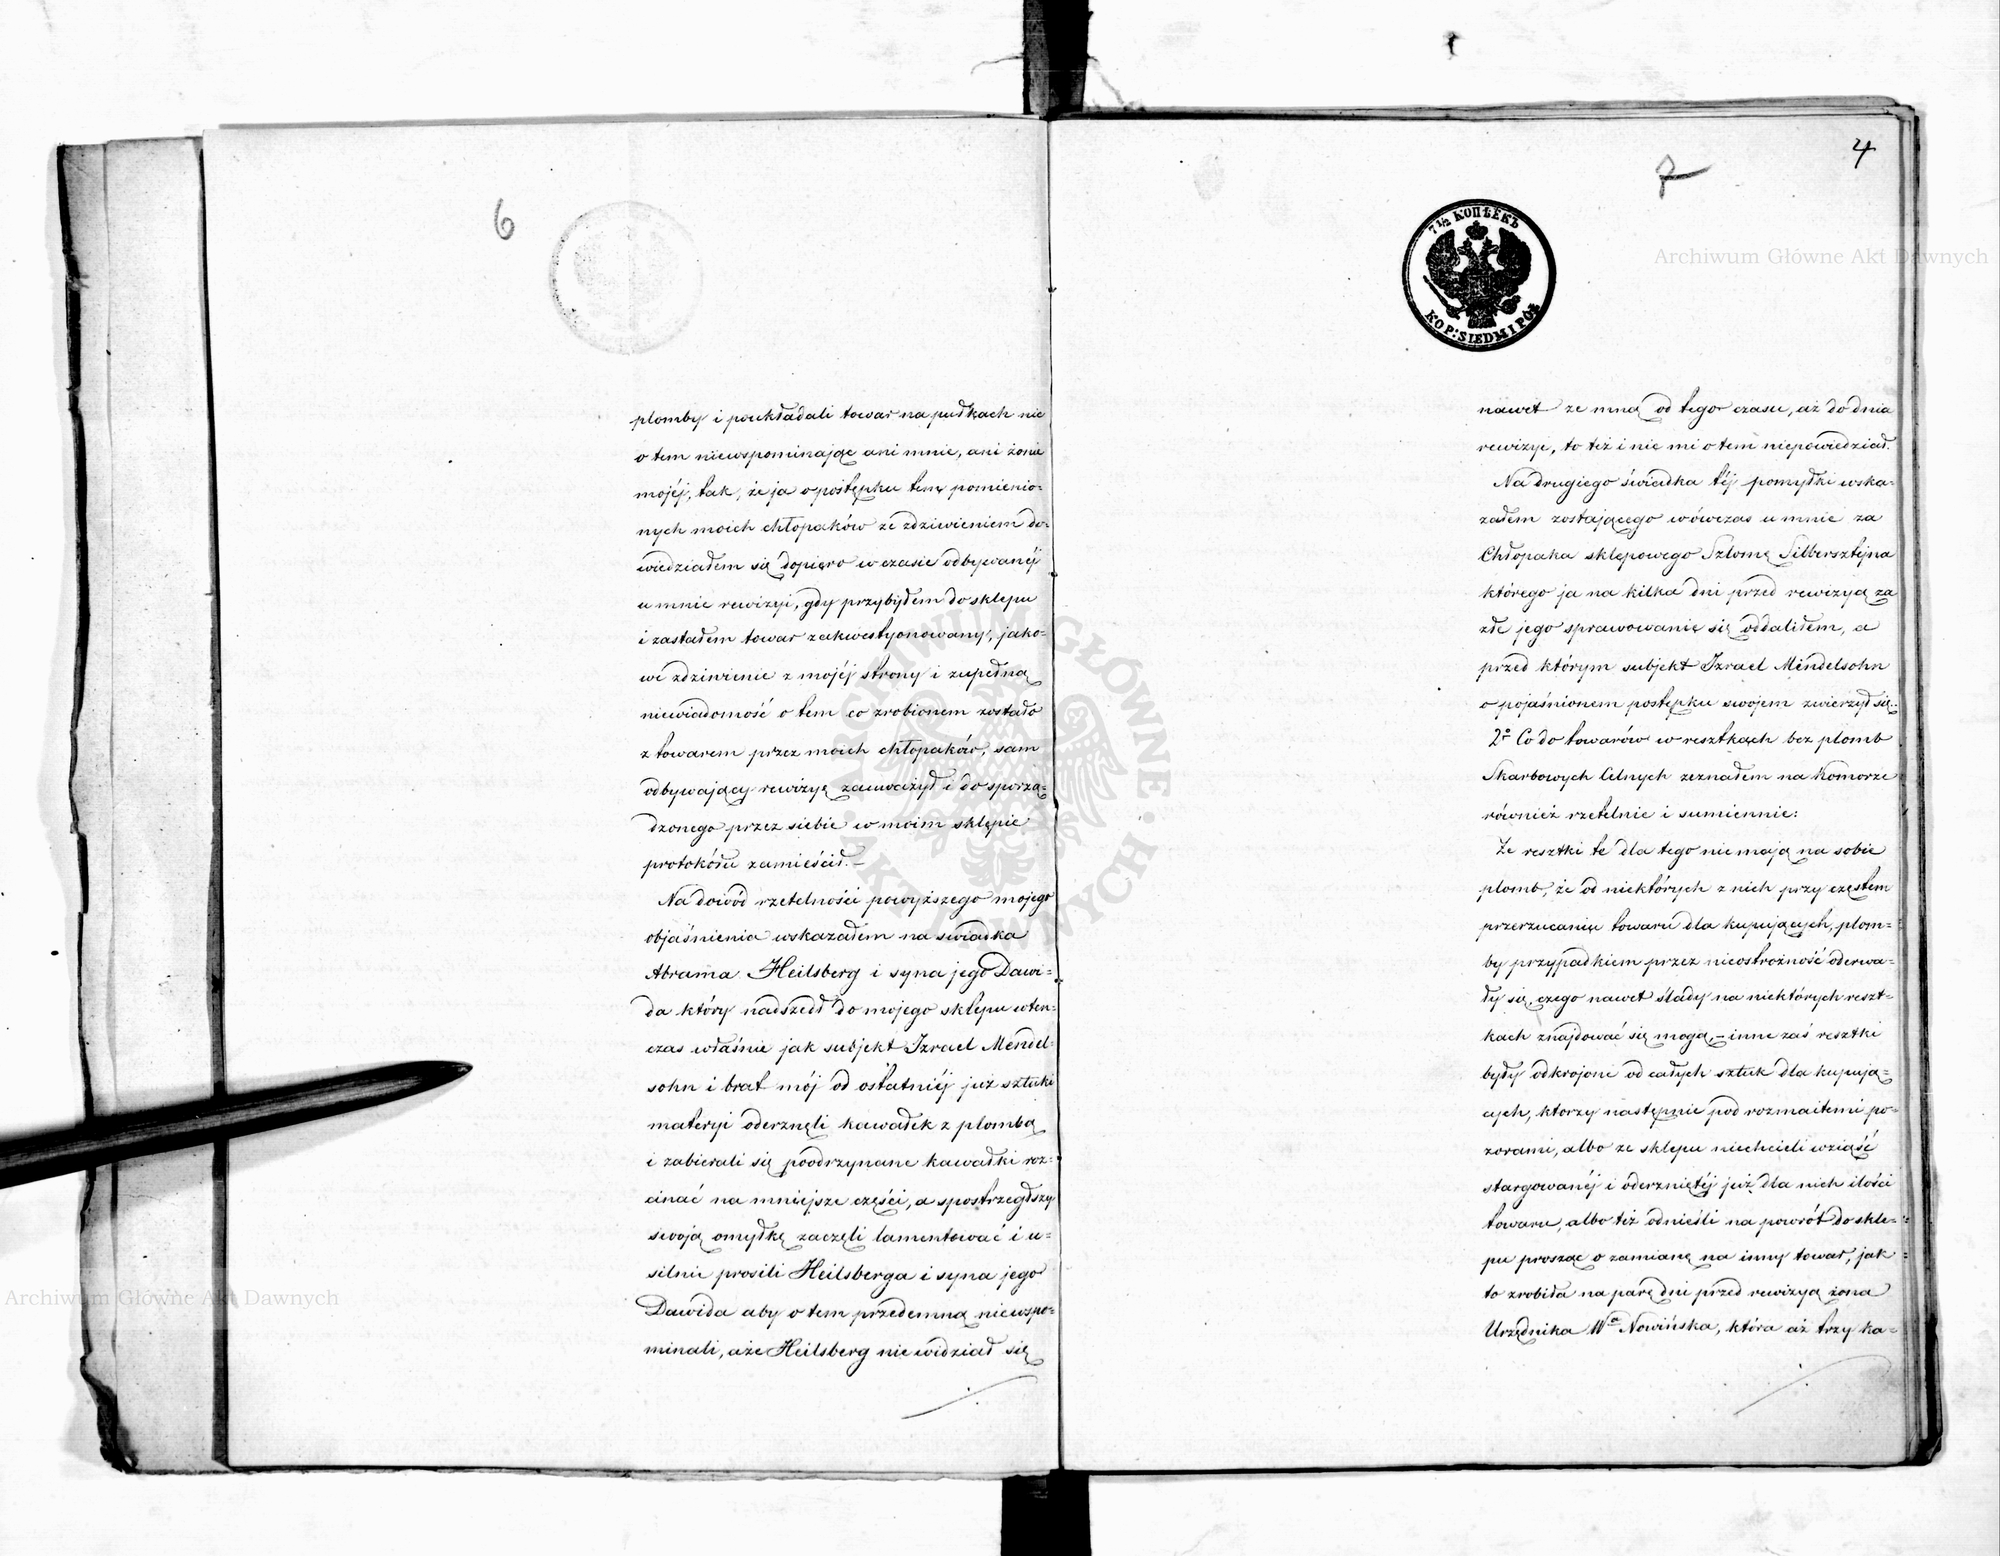 6
plomby i poukładali towar na pułkach nic
o tem niewspominając ani mnie, ani żonie
mojéj, tak, że ja o postępku tem pomienio-
nych moich chłopaków ze zdziwieniem do-
wiedziałem się dopiero w czasie odbywanéj
u mnie rewizyi, gdy przybyłem do sklepu
i zastałem towar zakwestyonowany, jako-
we zdziwienie z mojéj strony i zupełną
niewiadomość o tem co zrobionem zostało
z towarem przez moich chłopaków, sam
odbywający rewizyę zauważył i do sporzą-
dzonego przez siebie w moim sklepie
protokółu zamieścił.—
Na dowód rzetelności powyższego mojego
objaśnienia wskazałem na swiadka
Abrama Heilsberg i syna jego Dawi-
da który nadszedł do mojego sklepu wten-
czas właśnie jak subjekt Izrael Mendel-
sohn i brat mój od ostatniéj już sztuki
materyi oderznęli kawałek z plombą
i zabierali się poodrzynane kawałki roz-
cinać na mniejsze części, a spostrzegłszy
swoją omyłkę zaczęli lamentować i u-
silnie prosili Heilsberga i syna jego
Dawida aby o tem przedemną niewspo-
minali, a że Heilsberg nie widział się
4
7
7 1/2 КОПѢЕКЪ
KOP: SIEDM I PÓŁ
nawet ze mną od tego czasu, aż do dnia
rewizyi, to też i nic mi o tem niepowiedział.
Na drugiego świadka téj pomyłki wska-
załem zostającego wówczas u mnie za
Chłopaka sklepowego Szlomę Silbersztejna
którego ja na kilka dni przed rewizyą za
złe jego sprawowanie się oddaliłem, a
przed którym subjekt Izrael Mendelsohn
o pojaśnionem postępku swojem zwierzył się.
2o Co do towarów w resztkach bez plomb
Skarbowych Celnych zeznałem na Komorze
również rzetelnie i sumiennie:
Że resztki te dla tego nie mają na sobie
plomb, że od niektórych z nich przy częstem
przerzucaniu towaru dla kupujących, plom-
by przypadkiem przez nieostrożność oderwa-
ły się, czego nawet ślady na niektórych reszt-
kach znajdować się mogą,— inne zaś resztki
były odkrojone od całych sztuk dla kupują-
cych, ktorzy następnie pod rozmaitemi po-
zorami, albo ze sklepu niechcieli wziąść
stargowanéj i oderzniętéj już dla nich ilości
towaru, albo też odnieśli na powrót do skle-
pu prosząc o zamianę na inny towar, jak
to zrobiła na parę dni przed rewizyą żona
Urzędnika Wa Nowińska, która aż trzy ka-
Archiwum Główne Akt Dawnych
Archiwum Główne Akt Dawnych
ARCHIWUM GŁÓWNE AKT DAWNYCH